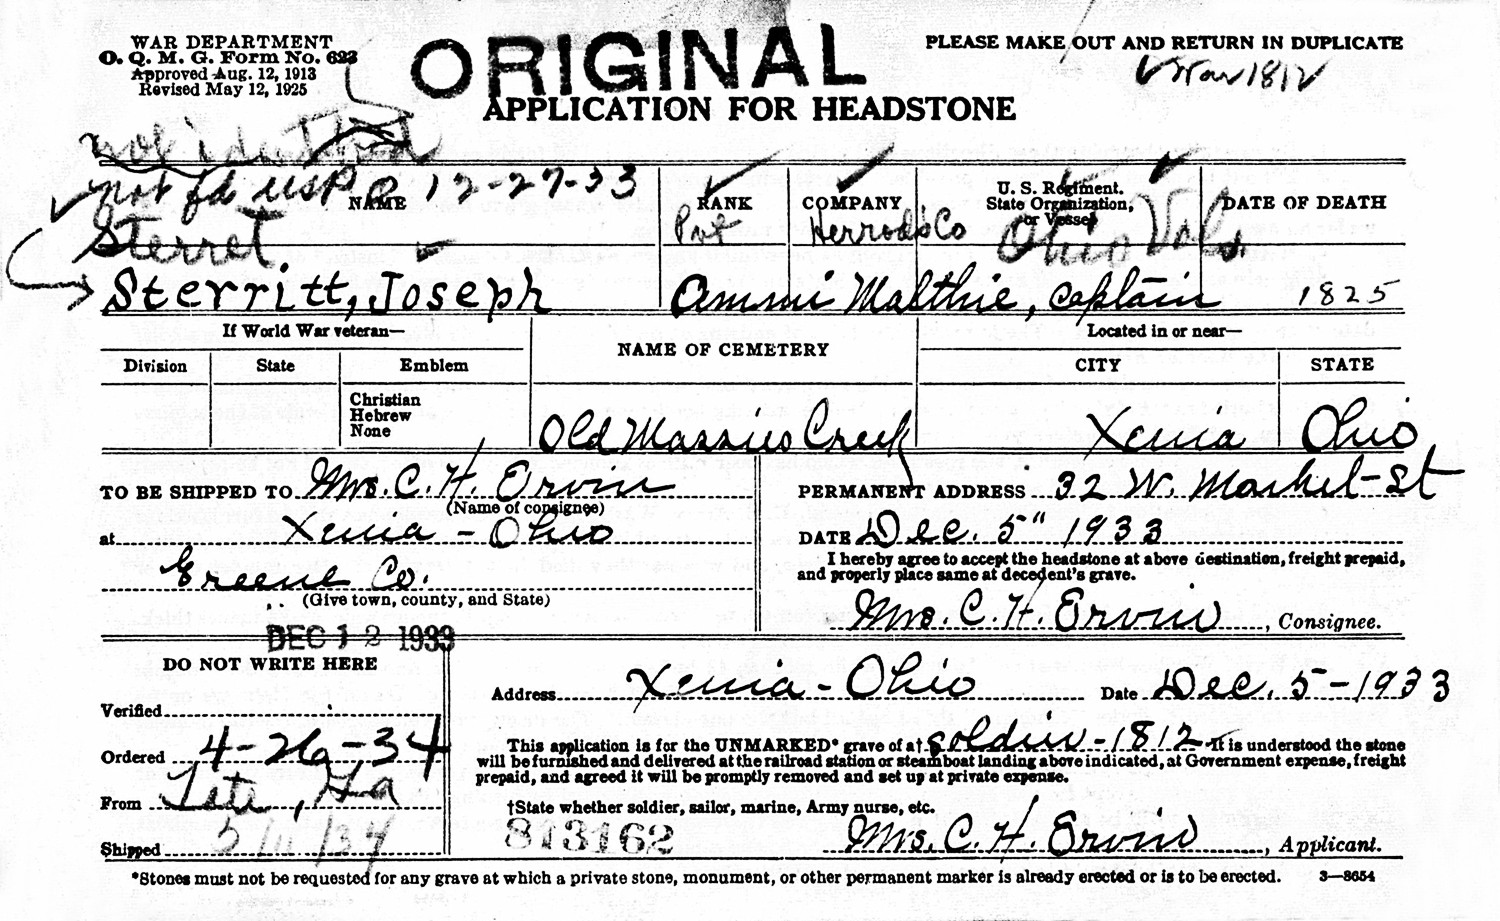 WAR DEPARTMENT
O. Q. M. G. Form No. 623
Approved Aug. 12, 1913
Revised May 12, 1925
ORIGINAL
APPLICATION FOR HEADSTONE
PLEASE MAKE OUT AND RETURN IN DUPLICATE
War 1812
not identified
not fd USP 12-27-33
NAME
RANK
COMPANY
U. S. Regiment.
State Organization,
or Vessel
DATE OF DEATH
Sterret
Pvt
Herrod's Co
Ohio Vols.
Sterritt, Joseph
Ammi Malthie, Captain
1825
If World War veteran—
NAME OF CEMETERY
Located in or near—
Division
State
Emblem
CITY
STATE
Christian
Hebrew
None
Old Massies Creek
Xenia
Ohio
TO BE SHIPPED TO Mrs. C. H. Ervin
(Name of consignee)
at Xenia - Ohio
Greene Co.
(Give town, county, and State)
PERMANENT ADDRESS 32 W. Market St
DATE Dec. 5" 1933
I hereby agree to accept the headstone at above destination, freight prepaid,
and properly place same at decedent's grave.
Mrs. C. H. Ervin, Consignee.
DEC 12 1933
DO NOT WRITE HERE
Verified
Ordered 4-26-34
From Tate, Ga
Shipped 5/11/34
Address Xenia - Ohio Date Dec. 5-1933
This application is for the UNMARKED* grave of a† soldier-1812 It is understood the stone
will be furnished and delivered at the railroad station or steamboat landing above indicated, at Government expense, freight
prepaid, and agreed it will be promptly removed and set up at private expense.
†State whether soldier, sailor, marine, Army nurse, etc.
813162
Mrs. C. H. Ervin, Applicant.
*Stones must not be requested for any grave at which a private stone, monument, or other permanent marker is already erected or is to be erected. 3—8654